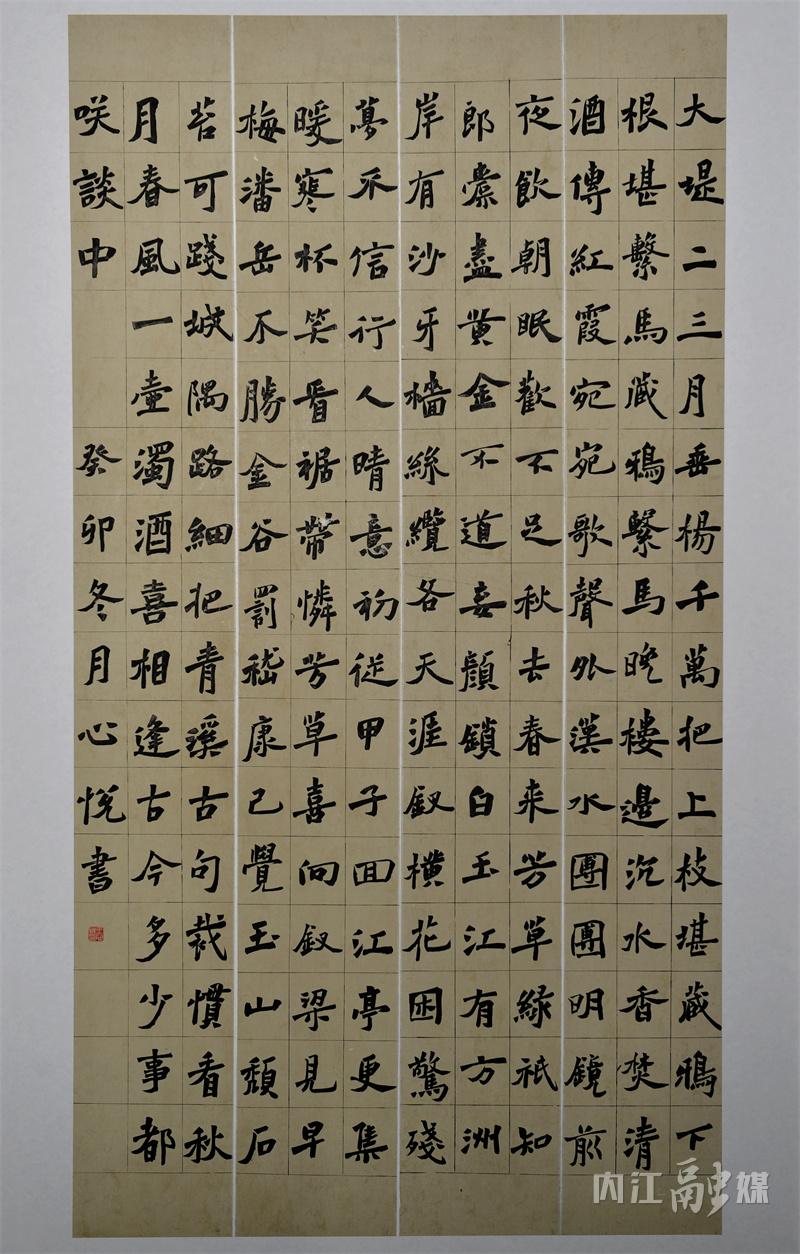 大堤二三月垂楊千萬把上枝堪藏鴉下
根堪繫馬藏鴉繫馬晚樓邊沉水香焚清
酒傳紅霞宛宛歌聲外漢水團團明鏡前
夜飲朝眠歡不足秋去春來芳草綠祇知
郎橐盡黃金不道妾顏鎖白玉江有方洲
岸有沙牙檣絲纜各天涯釵橫花困驚殘
夢不信行人晴意初從甲子回江亭更集
暖寒杯笑看裾帶憐芳草喜向釵梁見早
梅潘岳不勝金谷罰嵇康已覺玉山頹石
苔可踐城隅路細把青溪古句裁慣看秋
月春風一壺濁酒喜相逢古今多少事都
咲談中 癸卯冬月心悅書
内江融媒